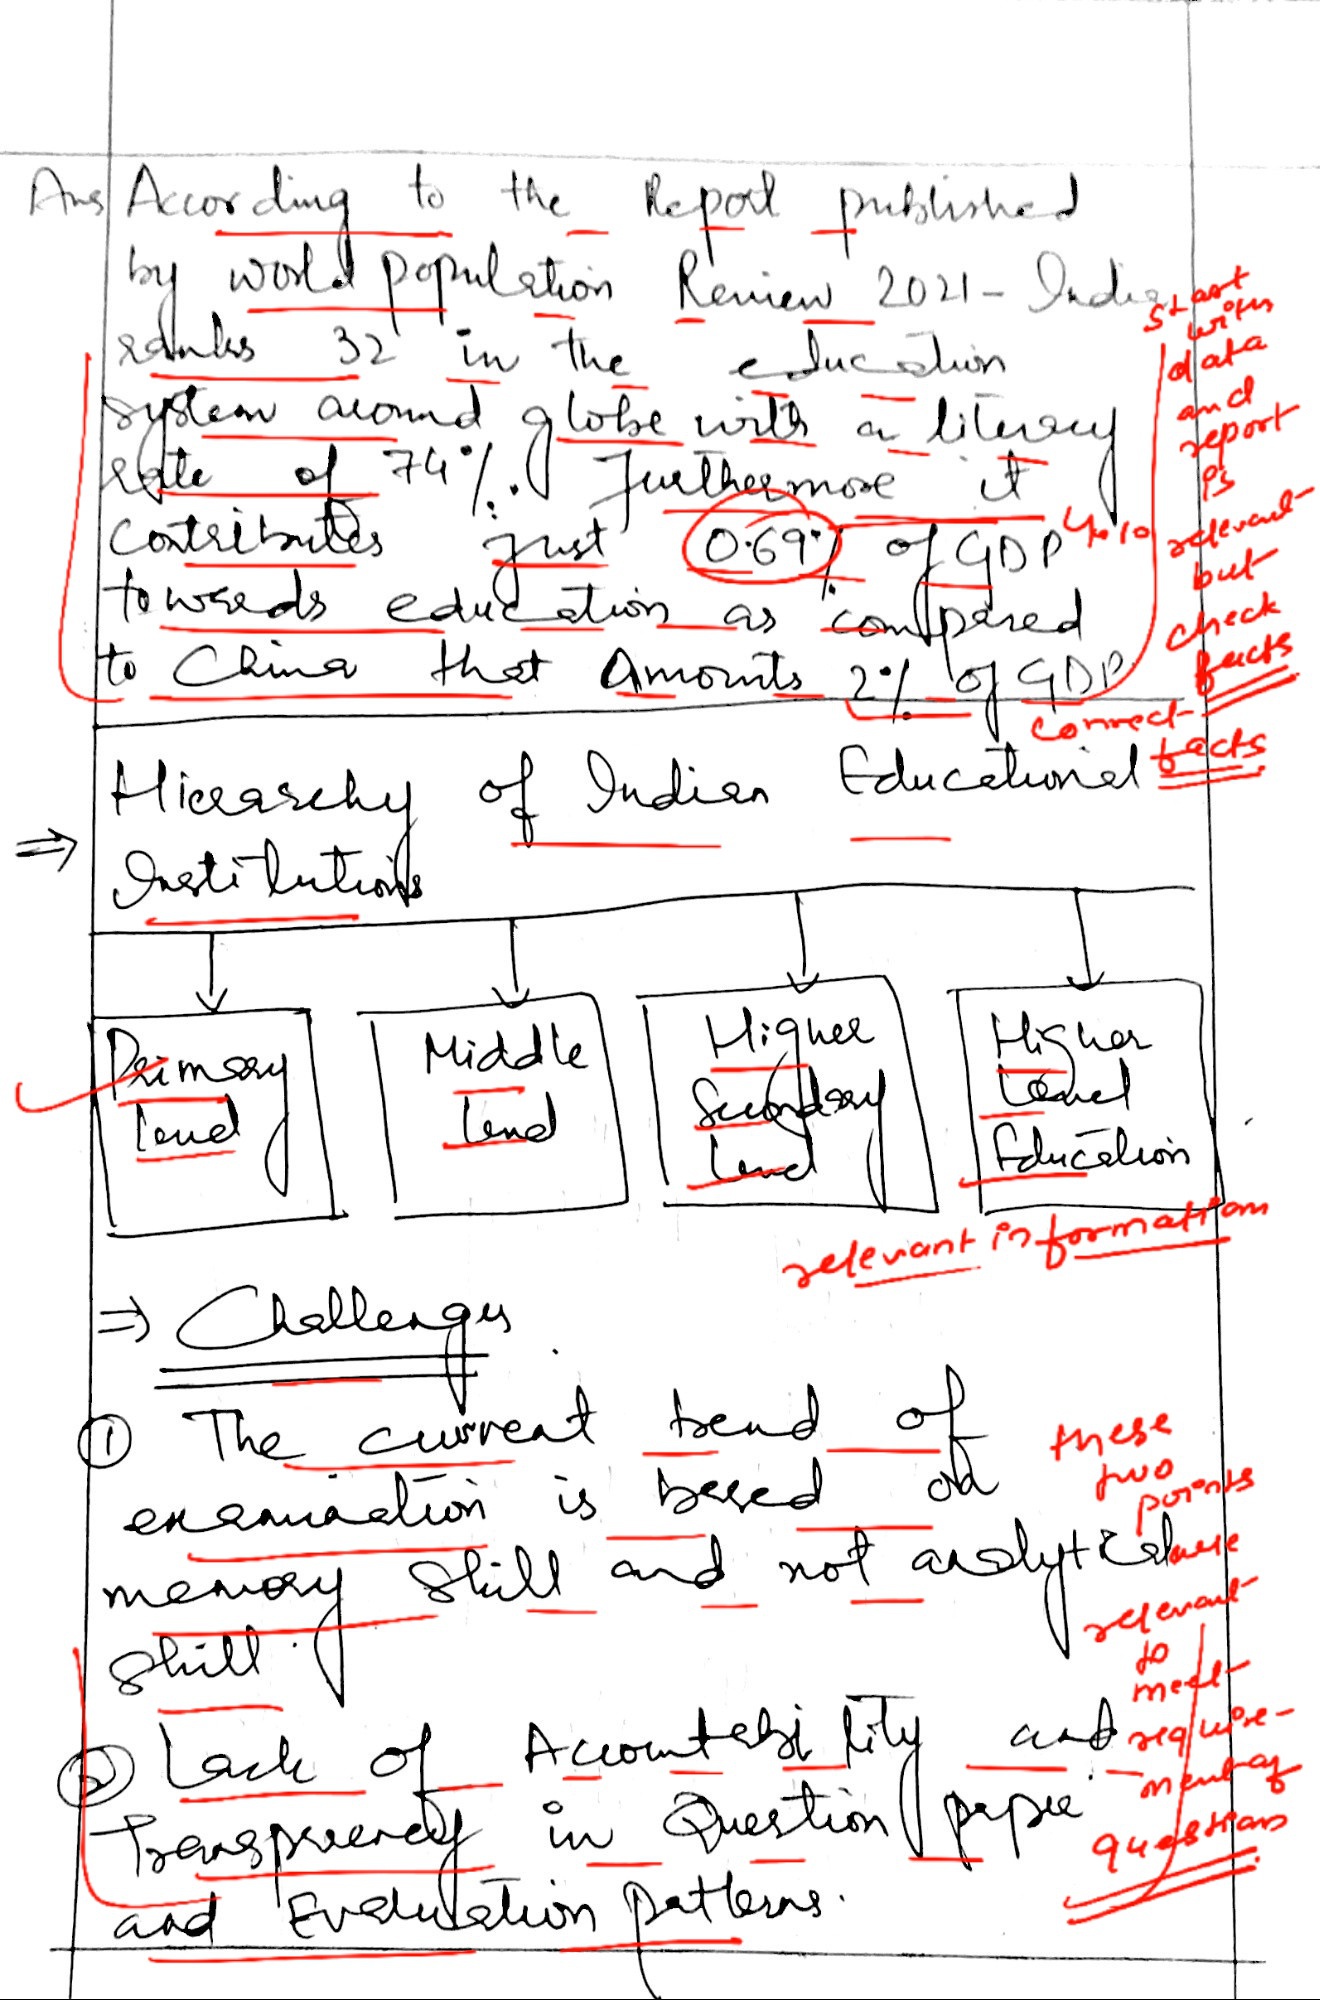 Ans According to the Report published
by world population Review 2021 - India
ranks 32 in the education
system around globe with a literacy
rate of 74%. Furthermore it
contributes just 0.69% of GDP
4%
towards education as compared
to China that Amounts 2% of GDP
start
with
data
and
report
is
relevant
but
check
facts
correct
facts
⇒ Hierarchy of Indian Educational
Institutions
Primary
Level
Middle
Level
Higher
Secondary
Level
Higher
Level
Education
relevant information
⇒ Challenges
① The current trend of
examination is based on
memory skill and not analytical
skill.
② Lack of Accountability and
Transparency in Question paper
and Evaluation patterns.
these
two
points
are
relevant
to
meet
require-
ment of
question